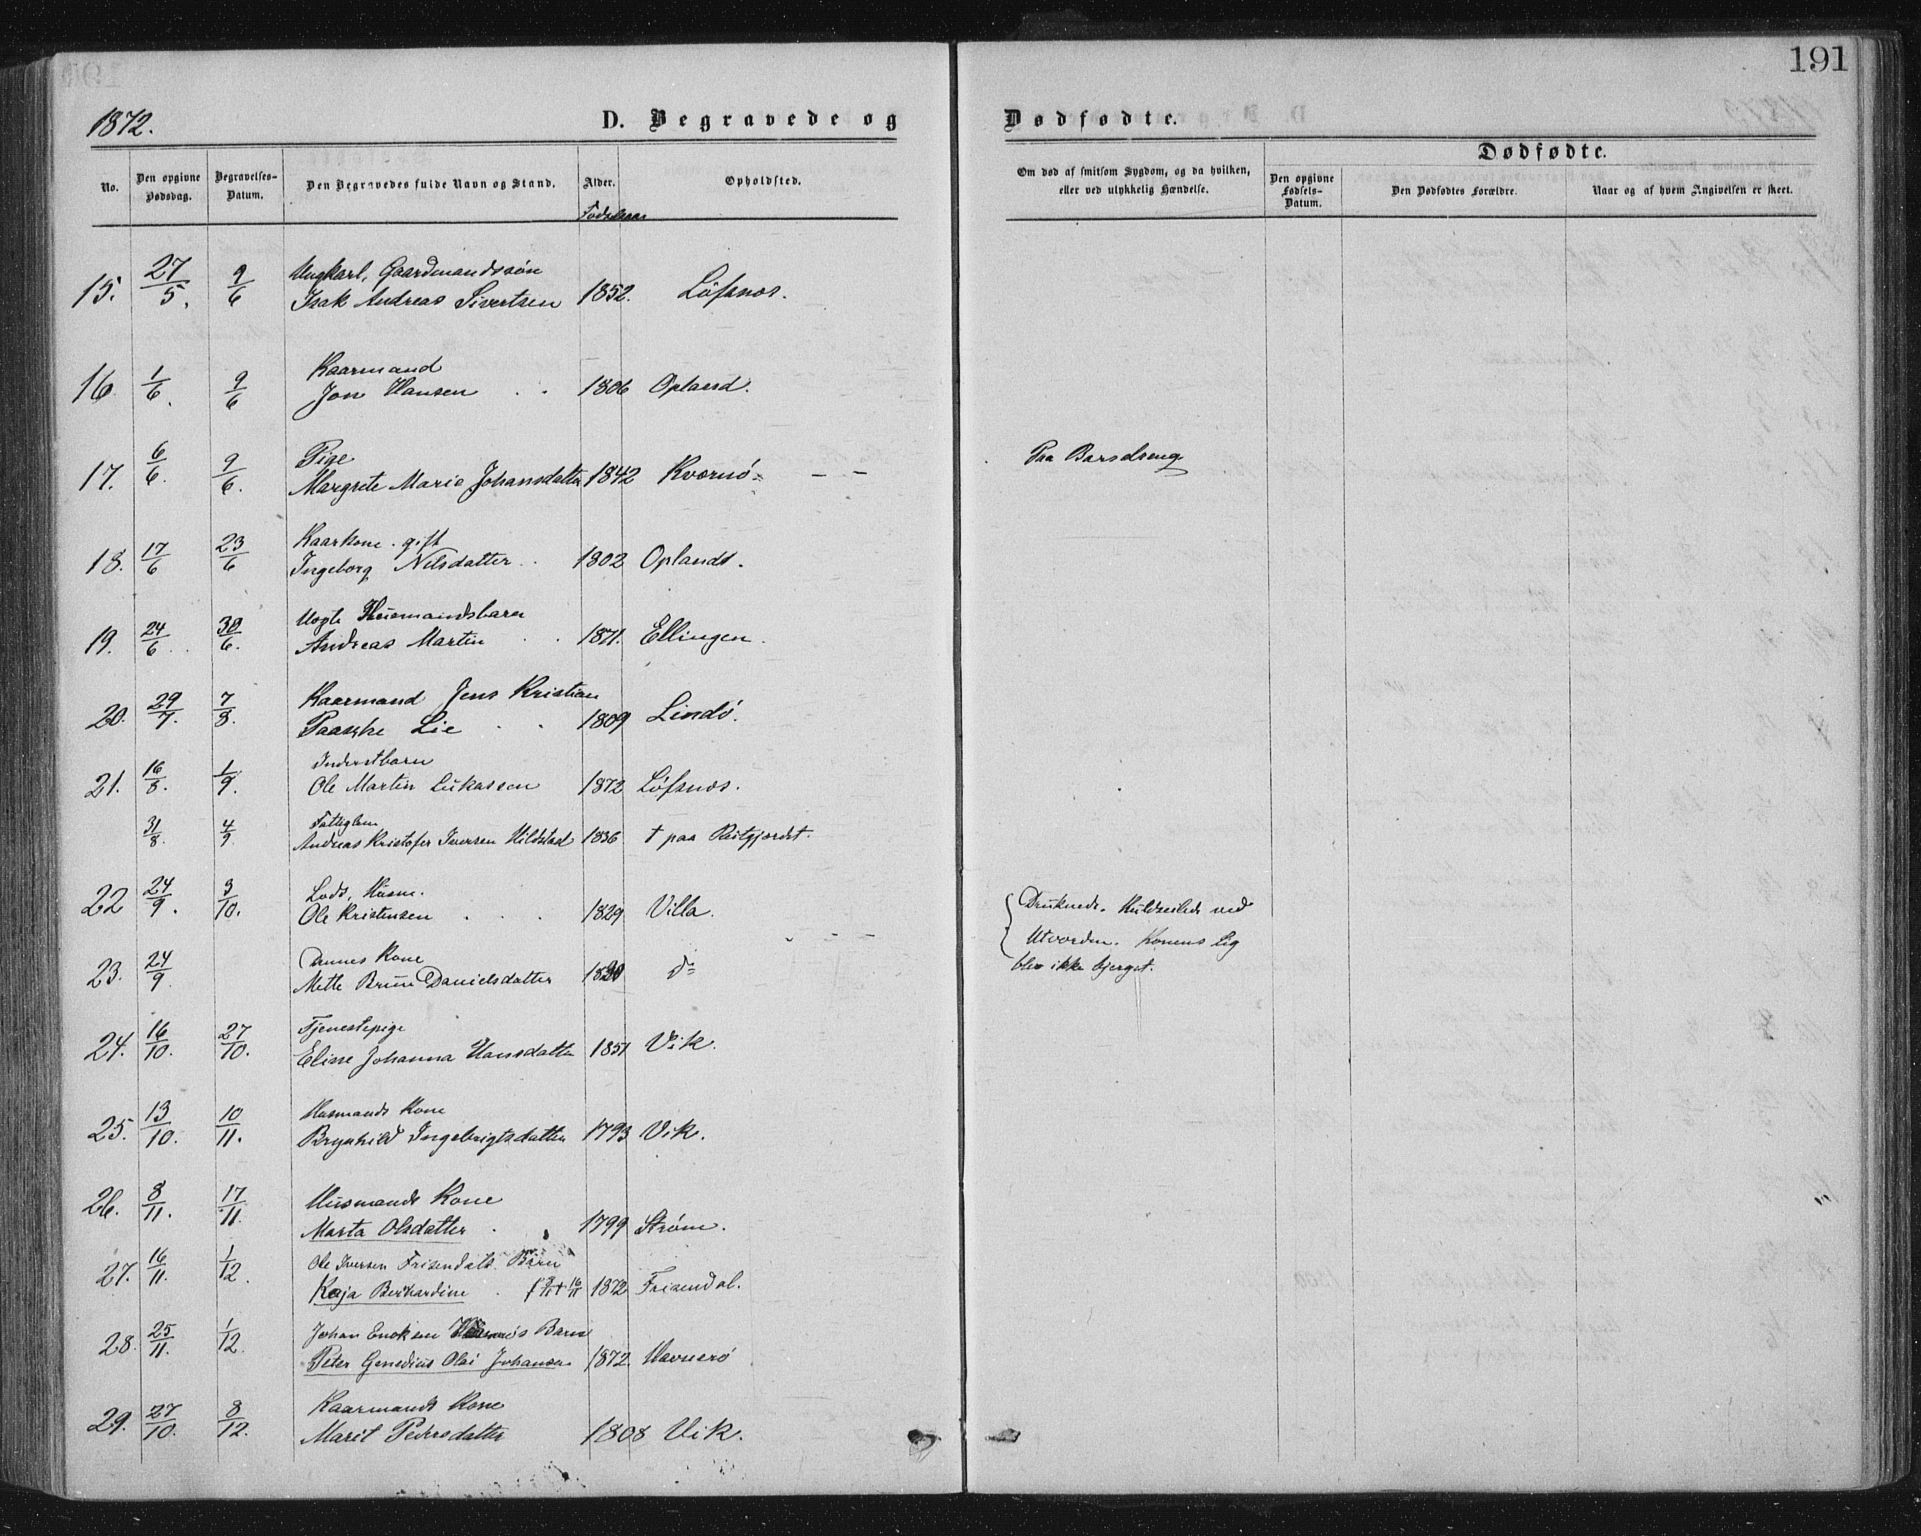 191
1872.
D. Begravede og
Dødfødte.
No.
Den opgivne Dødsdag.
Begravelses-Datum.
Den Begravedes fulde Navn og Stand.
Alder.
Fødselsaar
Opholdsted.
Om død af smitsom Sygdom, og da hvilken, eller ved ulykkelig Hændelse.
Dødfødte.
Den opgivne Fødsels-Datum.
Den Dødfødtes Forældre.
Naar og af hvem Angivelsen er skeet.
15. 27/5. 9/6 Ungkarl, Gaardmandssøn
Isak Andreas Sivertsen 1852. Løfsnes.
16 1/6. 9/6 Kaarmand
Jon Hansen 1806 Opland.
17. 6/6. 9/6. Pige
Margrete Marie Johansdatter 1842 Kvernø Paa Barseleng
18. 17/6 23/6 Kaarkone. gift
Ingeborg Nilsdatter 1802 Oplandt.
19. 24/6 30/6. Husmandsbarn
Andreas Martin 1871. Ellingen.
20. 29/7. 7/8. Kaarmand Jens Kristian
Paaske Lie 1809 Lindø.
21. 16/8. 1/9. Inderstbarn
Ole Martin Lukassen 1872 Løfsnes.
31/8. 4/9. Fattiglem
Andreas Kristofer Iversen Hildstad 1836 † paa Reitgjerdet.
22 24/9. 3/10. Lods, Husm.
Ole Kristensen 1829 Villa.
23. 24/9. Dennes Kone
Mette Bruun Danielsdatter do
Druknede. Kuldseilede ved
Utvorden. Konens Lig
blev ikke bjerget.
24. 16/10. 27/10. Tjenestepige
Elise Johanna Hansdatter 1851 Vik.
25. 13/10. 10/11. Husmands Kone
Brynhild Ingebrigtsdatter 1793 Vik.
26. 8/11. 17/11. Husmands Kone
Marta Olsdatter 1799 Strøm.
27. 16/11. 1/12. Ole Iversen Frisendals Barn
Kaja Berhardine 1872 Frisendal.
28. 25/11. 1/12. Johan Barn
Peter Genedius Olai Johansen 1872 Havnerø
29. 27/10. 8/12. Kaarmands Kone
Marit Pedersdatter 1808 Vik.